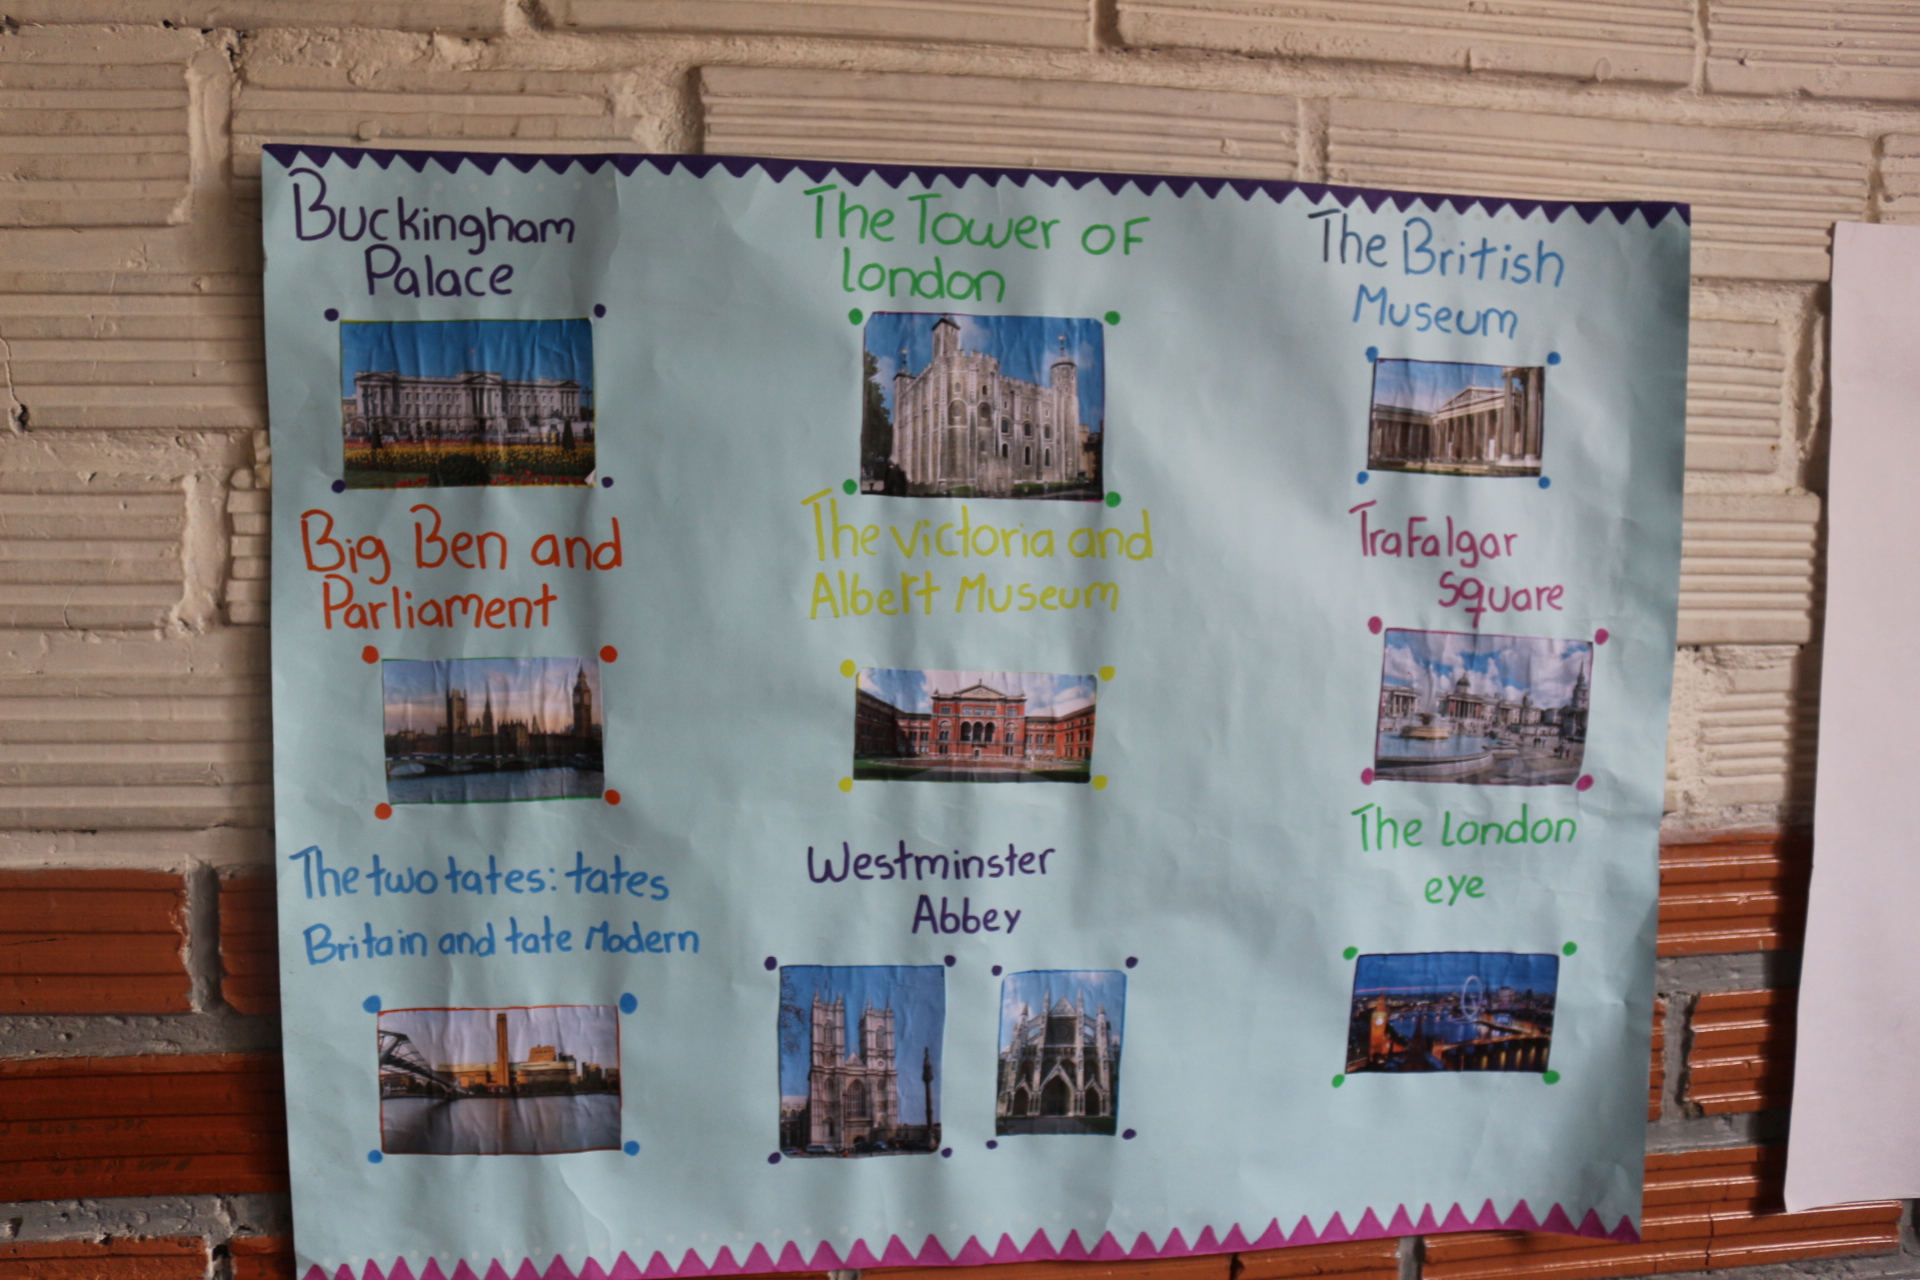 Buckingham
Palace
The Tower of
london
The British
Museum
Big Ben and
Parliament
The victoria and
Albert Museum
Trafalgar
Square
The two tates: tates
Britain and tate Modern
Westminster
Abbey
The london
eye